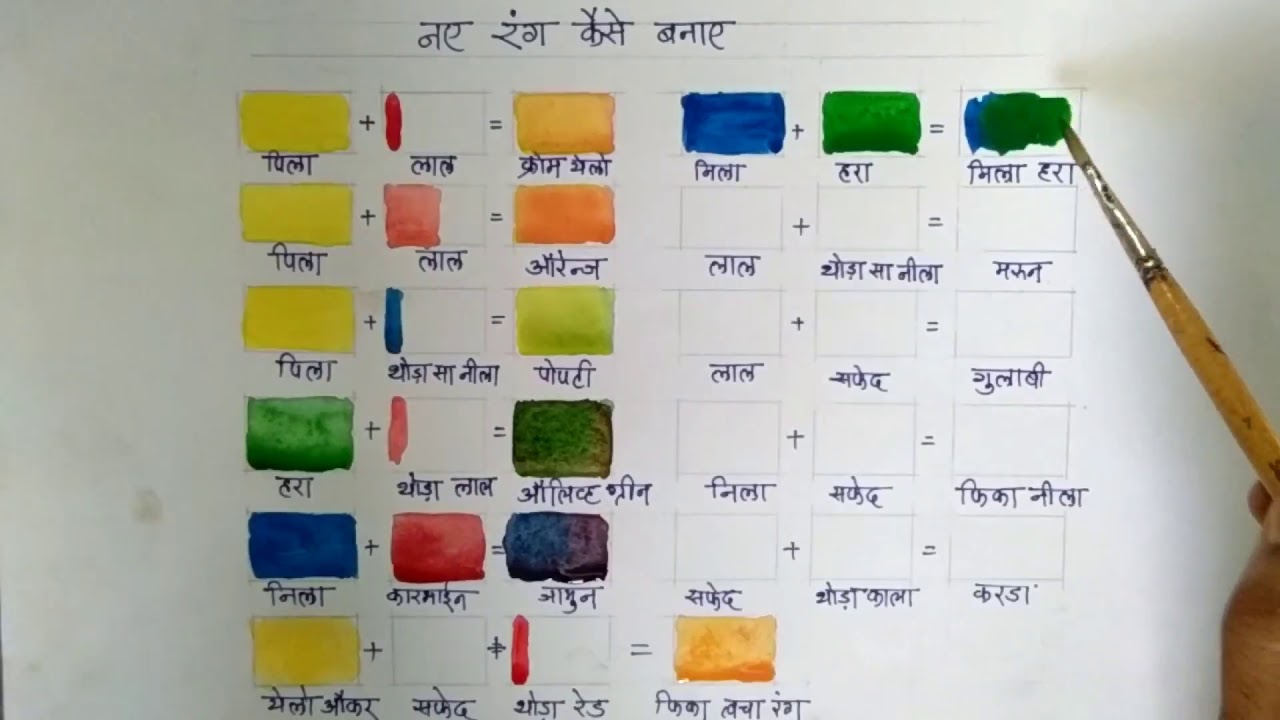 नए रंग कैसे बनाए
+ = + =
पिला लाल क्रोम येलो निला हरा निला हरा
+ = + =
पिला लाल ऑरेन्ज लाल थोड़ा सा नीला मरुन
+ = + =
पिला थोड़ा सा नीला पोपटी लाल सफेद गुलाबी
+ = + =
हरा थोड़ा लाल ऑलिव्ह ग्रीन निला सफेद फिका नीला
+ = + =
निला कारमाईन जामुन सफेद थोड़ा काला करडा
+ + =
येलो ऑकर सफेद थोड़ा रेड फिका त्वचा रंग